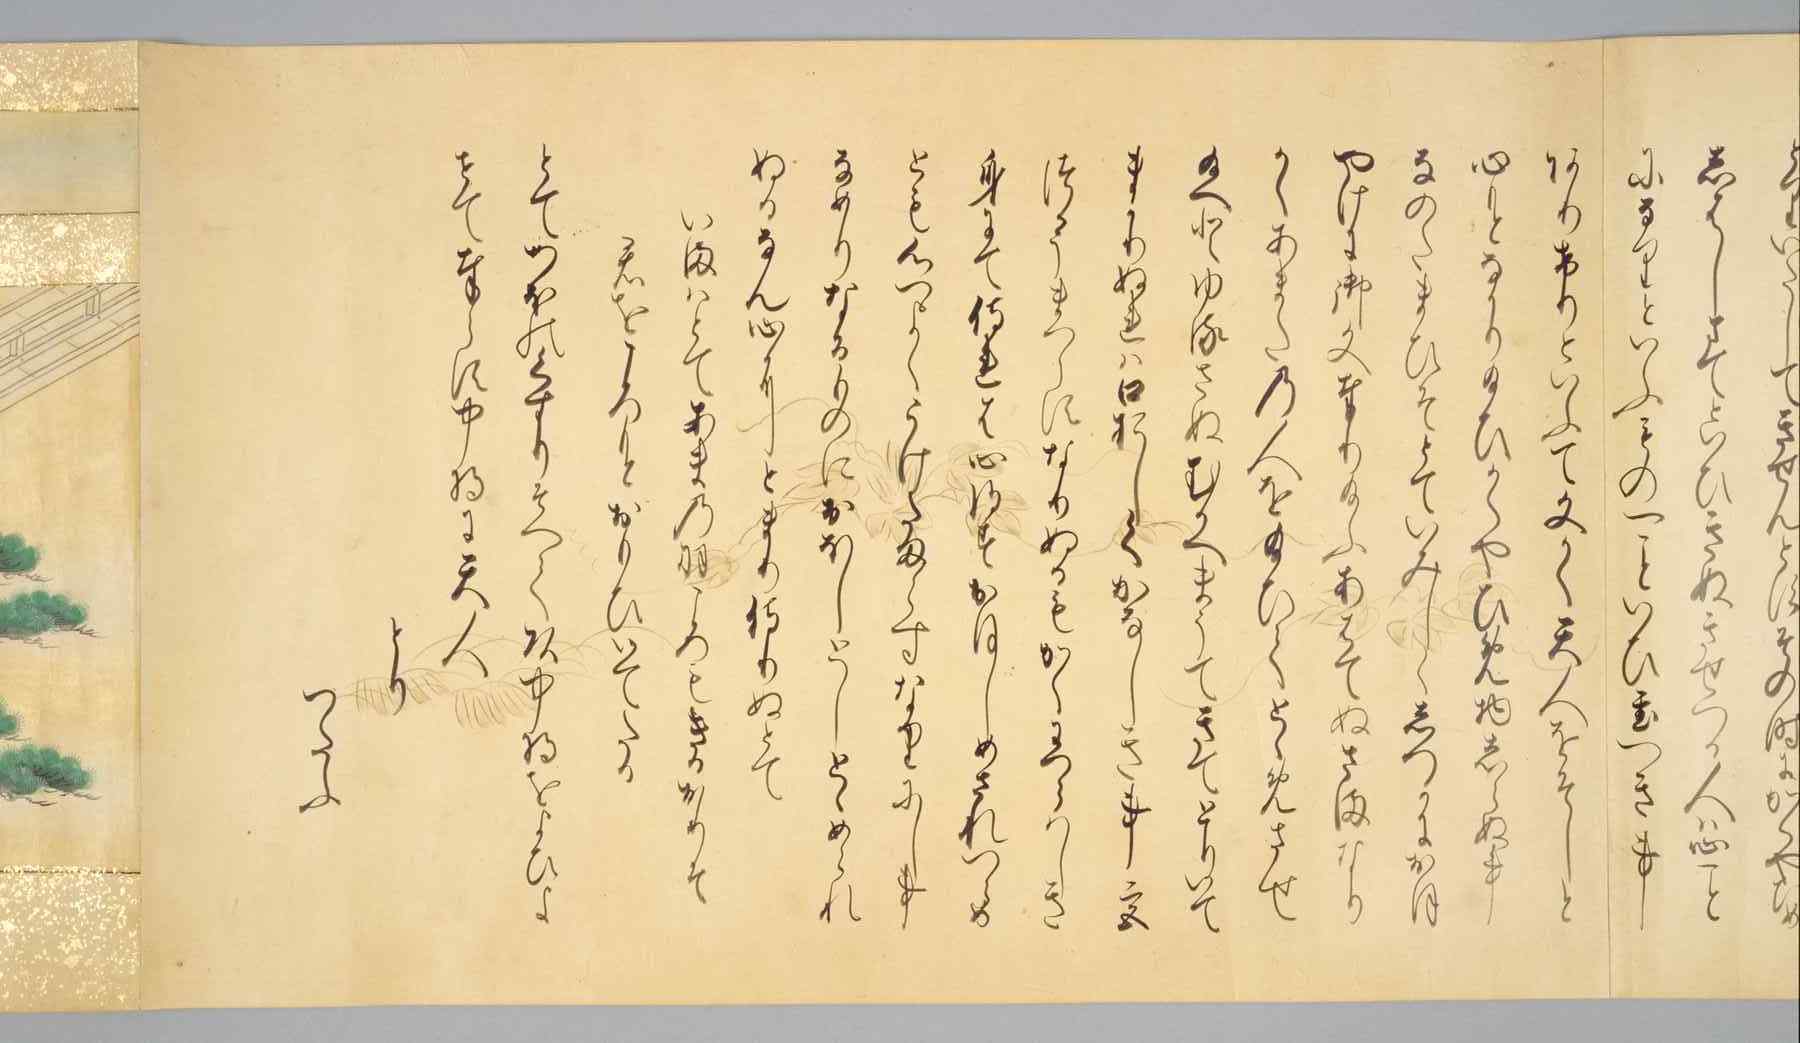 とりいたしてきせんとすその時にかくやひめ
志はしまてといひきぬきせつる人は心こと
になるなりといふもの一こといひ置へき事
ありけりといひて文かく天人をそしと
心もとなかり給ひかくやひめ物志らぬ事
なのたまひそとていみしく志つかにおほ
やけに御文奉り給ふあはてぬさまなり
かくあまたの人を給ひてとゝめさせ
給へとゆるさぬむかへまうてきてとりいて
まかりぬれは口おしくかなしき事宮
仕うまつらすなりぬるもかくわつらはしき
身にて侍れは心得すおほしめされつらめ
とも心つよくうけたまはらすなりにし事
なめけなるものにおほしとゝめられ
ぬるなん心にとまり侍りぬとて
いまはとてあまの羽ころもきるおりそ
君をあはれとおもひいてたる
とてつほのくすりそへて頭中将をよひよ
せて奉らす中将に天人
とり
つたふ